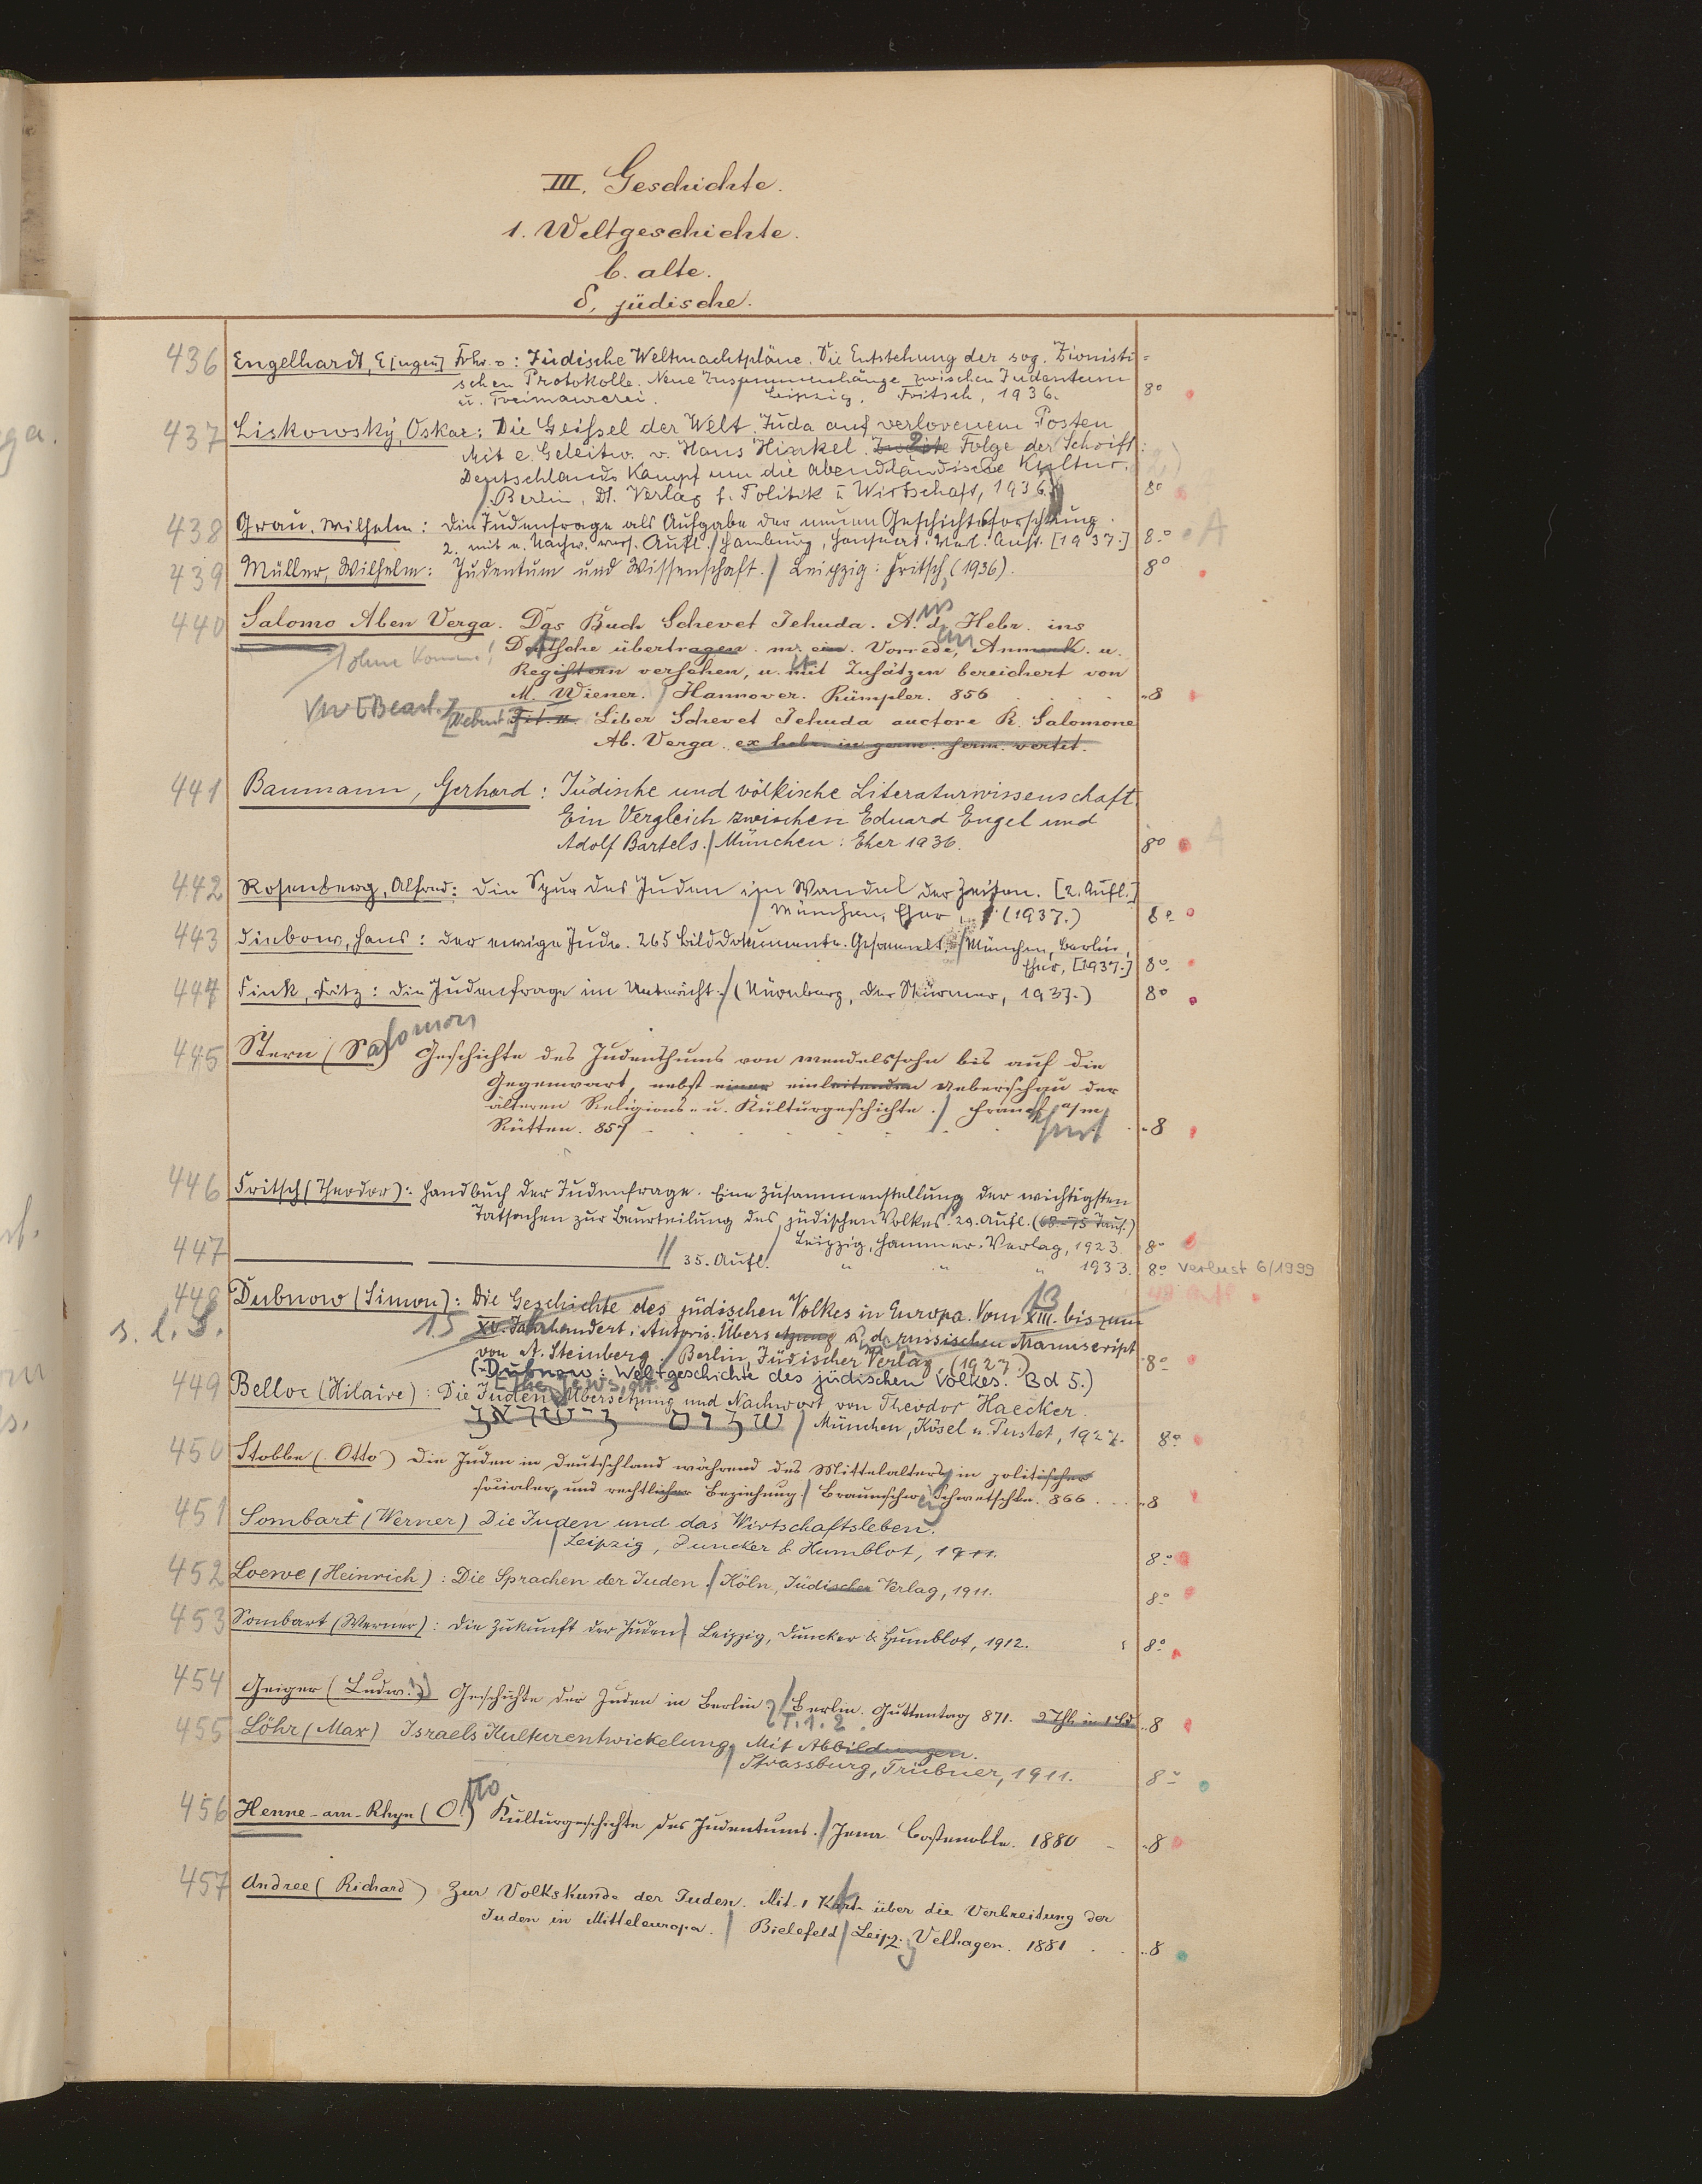 III. Geschichte.
1. Weltgeschichte.
b. alte.
δ, jüdische.
436 Engelhardt, E[ugen] Frhr. v: Jüdische Weltmachtpläne. Die Entstehung der sog. Zionisti=
schen Protokolle. Neue Zusammenhänge zwischen Judentum
u. Freimaurerei. / Leipzig, Fritsch, 1936. 8°
437 Liskowsky, Oskar: Die Geißel der Welt. Juda auf verlorenem Posten
Mit e. Geleitw. v. Hans Hinkel. Zweite 2 Folge der Schrift:
Deutschlands Kampf um die abendländische Kultur.
/ Berlin, Dt. Verlag f. Politik u. Wirtschaft, 1936. 8°
438 Grau, Wilhelm: Die Judenfrage als Aufgabe der neuen Geschichtsforschung.
2. mit e. Nachw. vers. Aufl. / Hamburg, Hanseat. Verl. Anst. [1937.] 8° A
439 Müller, Wilhelm: Judentum und Wissenschaft. / Leipzig: Fritsch (1936). 8°
440 Salomo Aben Verga. Das Buch Schevet Jehuda. A. d. Hebr. ins
1 ohne Komma! Deutsche übertragen. m. ein. Vorrede, Anmerk. u.
Registern versehen, u. mit Zusätzen bereichert von
M. Wiener. / Hannover. Rümpler. 856 8
[Nebent.] Tit. Liber Schevet Jehuda auctore R. Salomone
Ab. Verga ex hebr. in germ. serm. vertit.
441 Baumann, Gerhard: Jüdische und völkische Literaturwissenschaft.
Ein Vergleich zwischen Eduard Engel und
Adolf Bartels. / München: Eher 1936. 8° A
442 Rosenberg, Alfred: Die Spur des Juden im Wandel der Zeiten. [2. Aufl.]
/ München, Eher (1937.) 8°
443 Diebow, Hans: Der ewige Jude. 265 Bilddokumente. Gesammelt. / München, Berlin,
Eher, [1937.] 8°
444 Fink, Fritz: Die Judenfrage im Unterricht. / (Nürnberg, Der Stürmer, 1937.) 8°
445 Stern (Sa)lomon Geschichte des Judenthums von Mendelssohn bis auf die
Gegenwart, nebst einer einleitenden Ueberschau der
älteren Religions- u. Kulturgeschichte. / Frankfurt a/m
Rütten. 857 8
446 Fritsch (Theodor): Handbuch der Judenfrage. Eine Zusammenstellung der wichtigsten
Tatsachen zur Beurteilung des jüdischen Volkes. 29. Aufl. (68-75 Taus.)
/ Leipzig, Hammer-Verlag, 1923. 8°
447 // 35. Aufl. " " " 1933. 8° Verlust 6/1999
448 Dubnow (Simon): Die Geschichte des jüdischen Volkes in Europa. Vom XIII. 13 bis zum
s. l. S. 15 XV. Jahrhundert. Autoris. Übersetzung a. d. russischen Manuscript
von A. Steinberg. / Berlin, Jüdischer Verlag, (1927.) 8°
(-Dubnow: Weltgeschichte des jüdischen Volkes. Bd 5.)
449 Belloc (Hilaire): Die Juden [The Jews, dt.] Übersetzung und Nachwort von Theodor Haecker.
/ München, Kösel u. Pustet, 1927. 8°
450 Stobbe (Otto) Die Juden in Deutschland während des Mittelalters in politischer
socialer, und rechtlicher Beziehung. / Braunschweig Schwetschke. 866 8
451 Sombart (Werner) Die Juden und das Wirtschaftsleben.
/ Leipzig, Duncker & Humblot, 1911. 8°
452 Loewe (Heinrich): Die Sprachen der Juden. / Köln, Jüdischer Verlag, 1911. 8°
453 Sombart (Werner): Die Zukunft der Juden / Leipzig, Duncker & Humblot, 1912. 8°
454 Geiger (Ludw.) Geschichte der Juden in Berlin. T. 1. 2. / Berlin. Guttentag 871. 2 Thle in 1 Bd 8
455 Löhr (Max) Israels Kulturentwickelung. Mit Abbildungen.
/ Strassburg, Trübner, 1911. 8°
456 Henne-am-Rhyn (O)tto Kulturgeschichte des Judentums. / Jena. Costenoble. 1880 8
457 Andree (Richard) Zur Volkskunde der Juden. Mit 1 Karte über die Verbreitung der
Juden in Mitteleuropa. / Bielefeld / Leipzig Velhagen. 1881 8